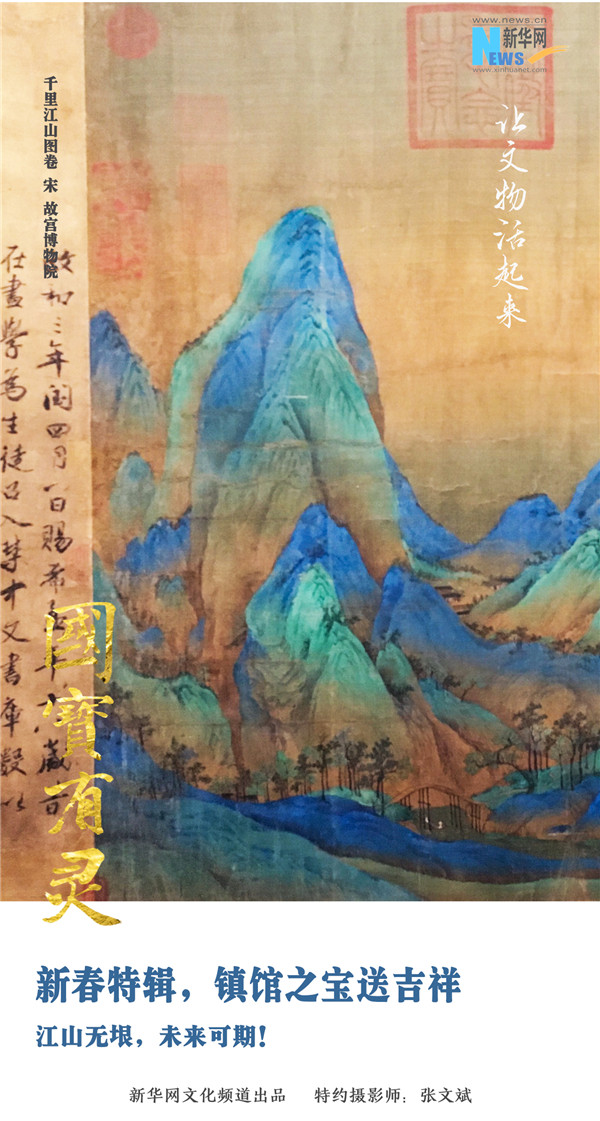 www.news.cn
新华网
NEWS
www.xinhuanet.com
让文物活起来
千里江山图卷 宋 故宫博物院
政和三年闰四月八日赐希孟年十八岁昔
在畫學為生徒召入禁中文書庫數以
國寶有灵
新春特辑，镇馆之宝送吉祥
江山无垠，未来可期！
新华网文化频道出品 特约摄影师：张文斌